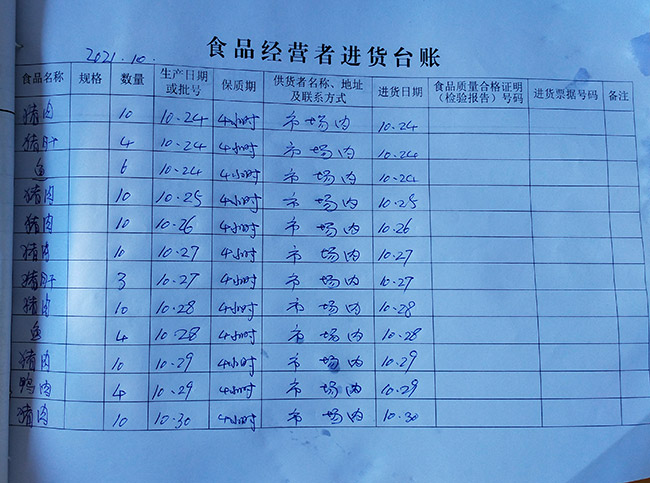 食品经营者进货台账
2021.10.
食品名称 规格 数量 生产日期或批号 保质期 供货者名称、地址及联系方式 进货日期 食品质量合格证明（检验报告）号码 进货票据号码 备注
猪肉 10 10.24 4小时 市场内 10.24
猪肝 4 10.24 4小时 市场内 10.24
鱼 6 10.24 4小时 市场内 10.24
猪肉 10 10.25 4小时 市场内 10.25
猪肉 10 10.26 4小时 市场内 10.26
猪肉 10 10.27 4小时 市场内 10.27
猪肝 3 10.27 4小时 市场内 10.27
猪肉 10 10.28 4小时 市场内 10.28
鱼 4 10.28 4小时 市场内 10.28
猪肉 10 10.29 4小时 市场内 10.29
鸭肉 4 10.29 4小时 市场内 10.29
猪肉 10 10.30 4小时 市场内 10.30